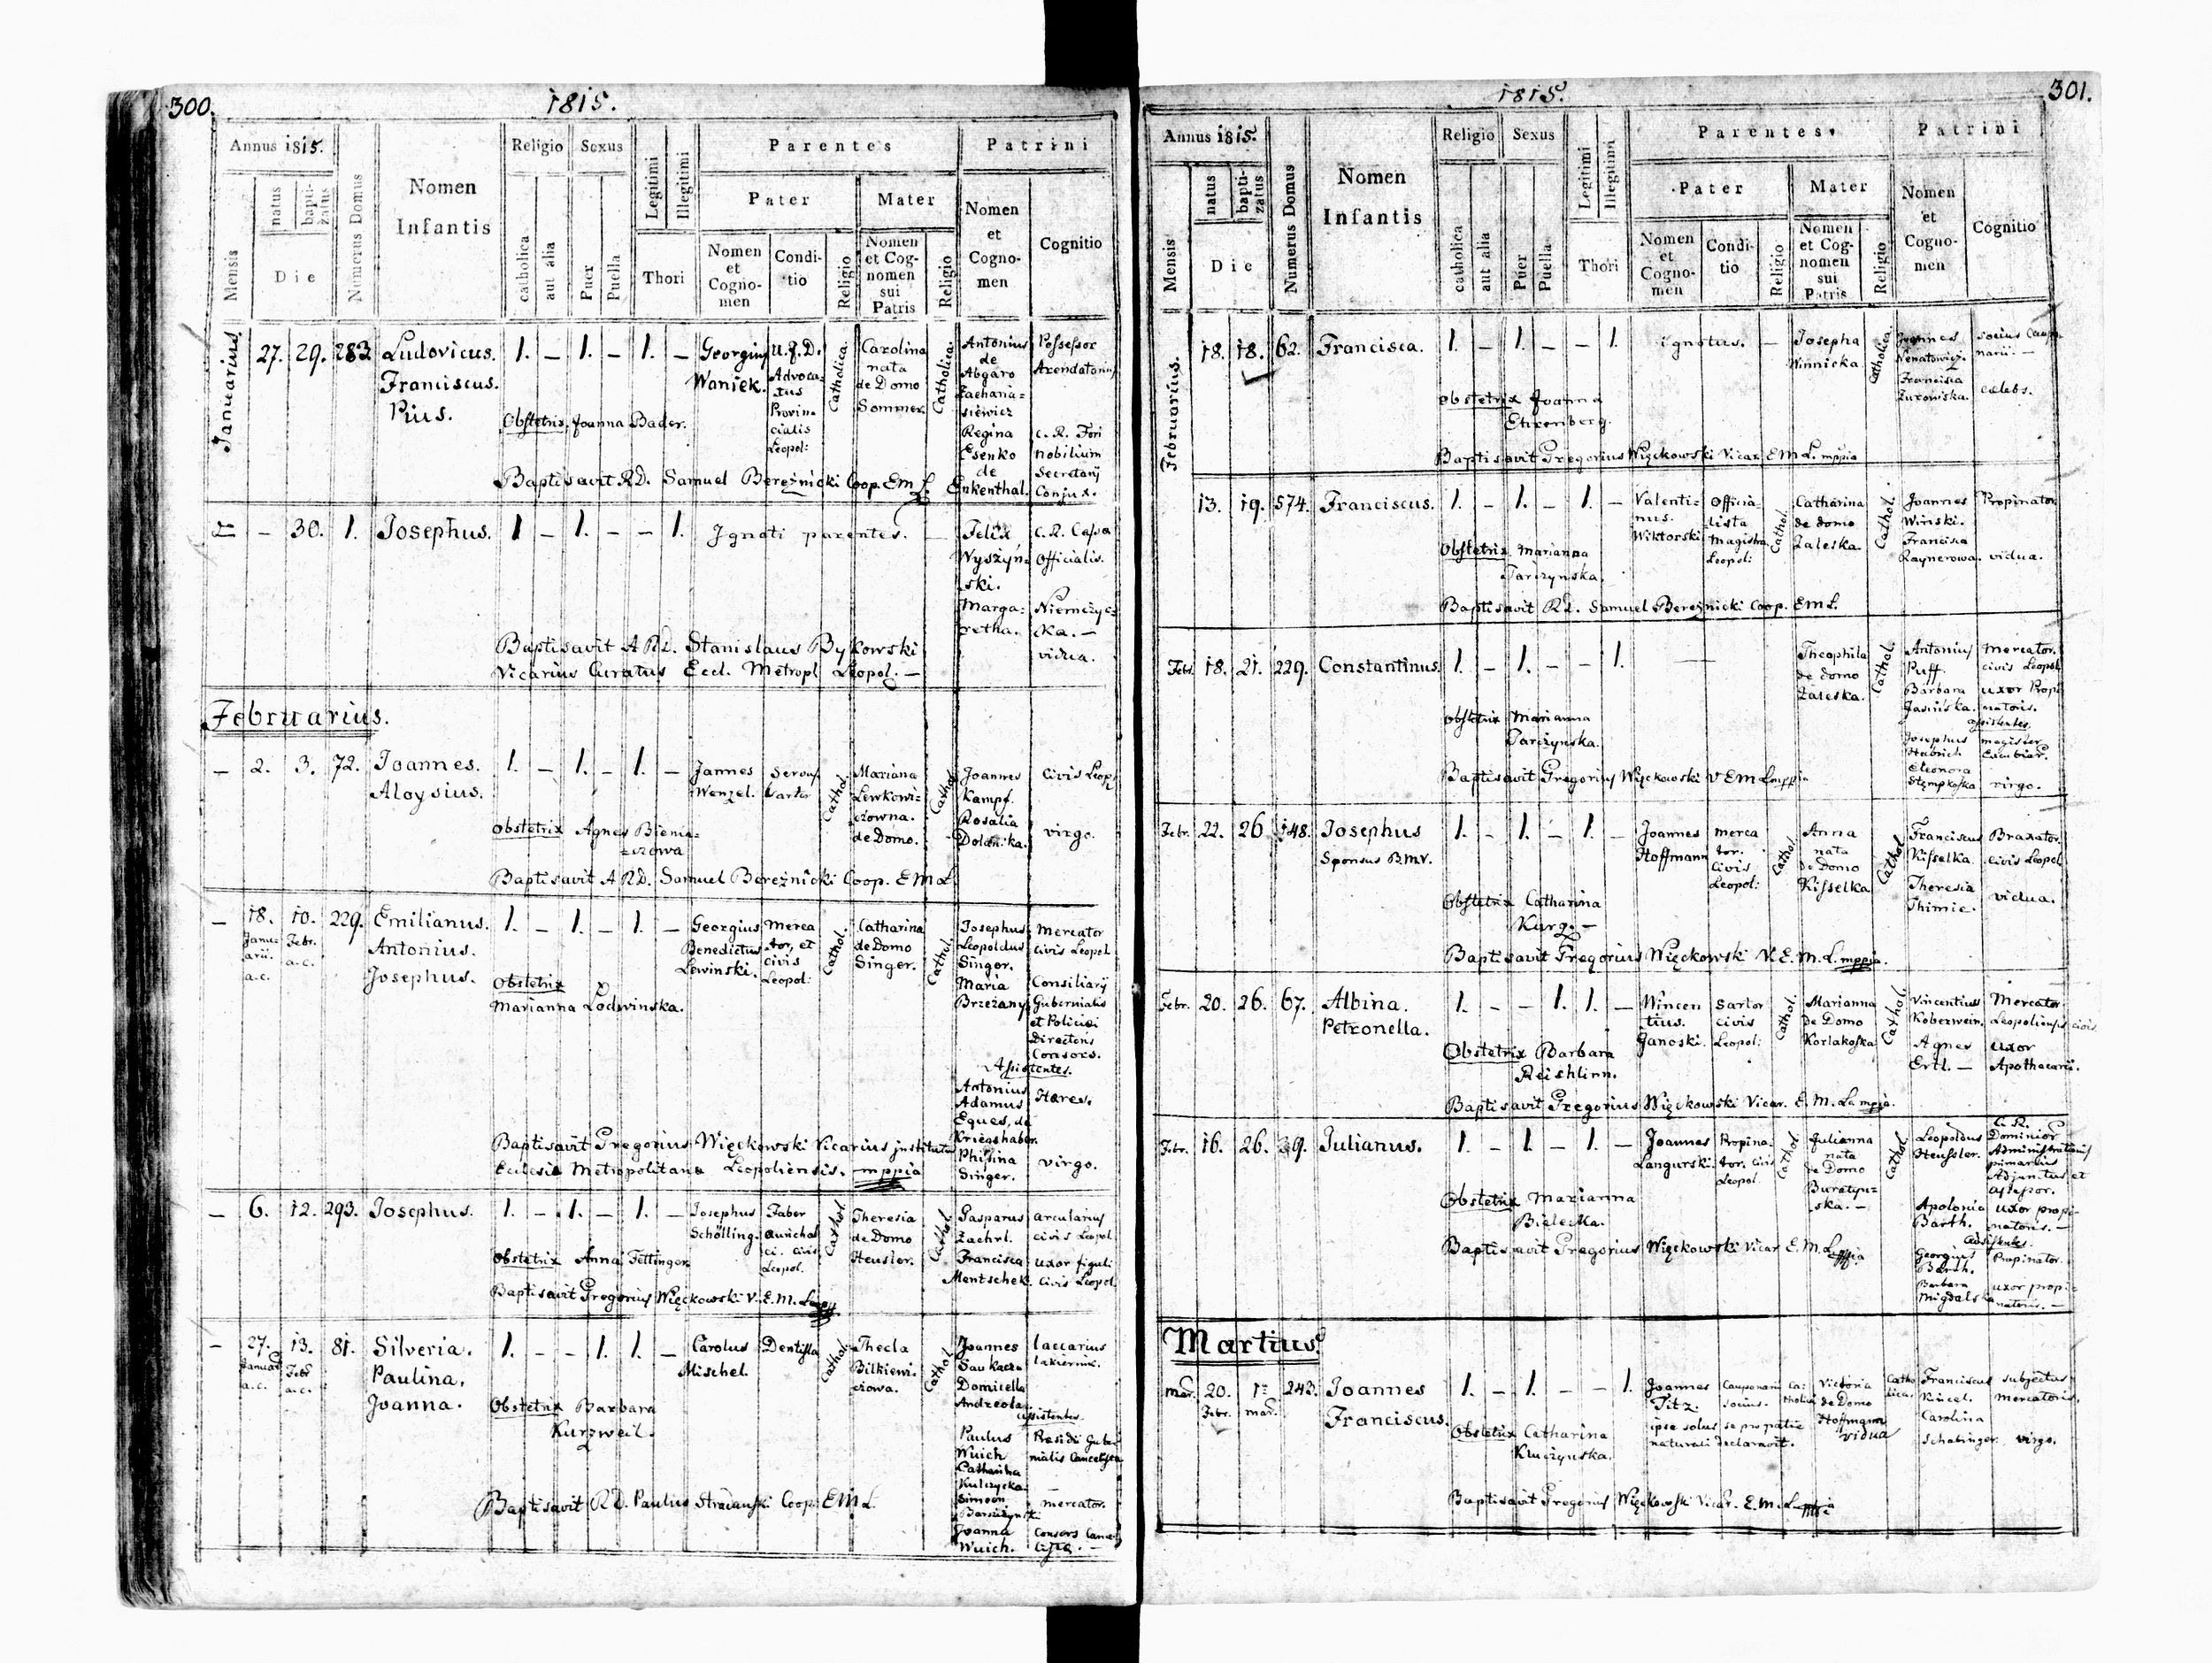 300.
1815.
Annus 1815.
Mensis
natus
bapti-
zatus
Die
Numerus Domus
Nomen
Infantis
Religio
catholica
aut alia
Sexus
Puer
Puella
Legitimi
Illegitimi
Thori
Parentes
Pater
Nomen
et
Cogno-
men
Condi-
tio
Religio
Mater
Nomen
et Cog-
nomen
sui
Patris
Religio
Patrini
Nomen
et
Cogno-
men
Cognitio
Januarius
27. 29. 283. Ludovicus. 1. – 1. – 1. –
Franciscus.
Pius.
Georgius
Waniek.
U.J.D.
Advoca-
tus
Provin-
cialis
Leopol:
Catholica
Carolina
nata
de Domo
Sommer
Catholica
Antonius
de
Abgaro
Zacharia-
siewicz
Regina
Esenko
de
Enkenthal.
Possessor
Arendatorius
c. R. Fori
nobilium
Secretarij
Conjux.
Obstetrix, Joanna Bader.
Baptisavit R.D. Samuel Bereźnicki Coop. E M L.
– 30. 1. Josephus. 1 – 1. – – 1. Ignoti parentes. –
Felix
Wyszyn-
ski.
Marga-
retha.
c. R. Cassa
Officialis.
Niemczyc-
ka. –
vidua.
Baptisavit A R D. Stanislaus Bykowski
Vicarius Curatus Eccl. Metropl Leopol. –
Februarius.
– 2. 3. 72. Joannes. 1. – 1. – 1. –
Aloysius.
Jannes
Wenzel.
Servus
Sartor
Cathol.
Mariana
Lewkowi-
czowna.
de Domo.
Cathol.
Joannes
Kampf.
Rosalia
Civis Leop.
virgo.
Obstetrix Agnes Bienia-
szowa
Baptisavit A R D. Samuel Bereźnicki Coop. E M L.
– 18. 10. 229. Emilianus. 1. – 1. – 1. –
Janu-
arii.
a.c.
Febr.
a.c.
Antonius.
Josephus.
Georgius
Benedictus
Lewinski.
Merca
tor, et
civis
Leopol:
Cathol.
Catharina
de Domo
Singer.
Cathol.
Josephus
Leopoldus
Singer.
Maria
Brzeżany
Mercator
civis Leopol
Consiliarij
Gubernialis
et Policiei
Directoris
Consors.
Assistentes.
Antonius
Adamus
Eques, de
Kriegshaber.
Philina
Singer.
Hares.
virgo.
Obstetrix
Marianna Lodwinska.
Baptisavit Gregorius Więckowski Vicarius institutus
Ecclesia Metropolitana Leopoliensis. mppia
– 6. 12. 293. Josephus. 1. – 1. – 1. –
Josephus
Schölling.
Faber
aurichal
ci. civis
Leopol.
Cathol.
Theresia
de Domo
Heusler.
Cathol.
Gasparus
Zaehrl.
Francisca
Mentschek.
arcularius
civis Leopol.
uxor figuli
civis Leopol.
Obstetrix Anna Fettinger
Baptisavit Gregorius Więckowski V. E. M. L mpp
– 27. 13. 81. Silveria. 1. – – 1. 1. –
Januar
a.c.
Febr
a.c.
Paulina.
Joanna.
Carolus
Mischel.
Dentista
Cathol.
Thecla
Bilkiewi-
czowa.
Cathol.
Joannes
Domicella
Andreola
laccarius
assistentes.
Paulus
Wuich
Catharina
Kulczycka
Simeon
Joanna
Wuich.
Presidii Guber
nialis Cancelista
–
mercator.
consors Cancel
lista. –
Obstetrix Barbara
Kurzweil.
Baptisavit R D. Paulus Stradanski Coop. E M L.
1815.
301.
Annus 1815.
Mensis
natus
bapti-
zatus
Die
Numerus Domus
Nomen
Infantis
Religio
catholica
aut alia
Sexus
Puer
Puella
Legitimi
Illegitimi
Thori
Parentes
Pater
Nomen
et
Cogno-
men
Condi-
tio
Religio
Mater
Nomen
et Cog-
nomen
sui
Patris
Religio
Patrini
Nomen
et
Cogno-
men
Cognitio
Februarius.
18. 18. 62. Francisca. 1. – 1. – – 1. ignotus. –
Josepha
Winnicka
Catholica
Joannes
Nenatowicz.
Francisca
Żurowiska.
socius Caupo
narii. –
caelebs.
Obstetrix Joanna
Ehrenberg.
Baptisavit Gregorius Więckowski Vicar. E M L. mppia
13. 19. 574. Franciscus. 1. – 1. – 1. –
Valenti-
nus.
Wiktorski
Officia
lista
Magistra.
Leopol:
Cathol.
Catharina
de domo
Zaleska.
Cathol.
Joannes
Winski.
Francisca
Raynerowa.
Propinator
vidua.
Obstetrix Marianna
Tarczynska.
Baptisavit R D. Samuel Bereźnicki Coop. E M L.
Febr. 18. 21. 229. Constantinus. 1. – 1. – – 1. —
Theophila
de domo
Zaleska.
Cathol.
Antonius
Puff.
Barbara
Jasinska.
mercator.
civis Leopol
uxor Propi
natoris.
assistentes.
Josephus
Eleonora
Stempkoska
magister
virgo.
Obstetrix Marianna
Tarczynska.
Baptisavit Gregorius Więckowski V E M L mpp
Febr. 22. 26 148. Josephus 1. – 1. – 1. –
Sponsus B.M.V.
Joannes
Hoffmann
merca
tor.
Civis
Leopol:
Cathol.
Anna
nata
de Domo
Kisselka
Cathol.
Franciscus
Kisselka.
Theresia
Thimie.
Braxator
civis Leopol
vidua.
Obstetrix Catharina
Kurz. –
Baptisavit Gregorius Więckowski V. E. M. L. mppia.
Febr. 20. 26. 67. Albina. 1. – – 1. 1. –
Petronella.
Wincen
tius.
Janoski.
Sartor
civis
Leopol:
Cathol.
Marianna
de Domo
Korlakoska
Cathol.
Vincentius
Koberwein.
Agnes
Ertl. –
Mercator.
Leopoliensis civis
uxor
Apothecarii.
Obstetrix Barbara
Reishlinn.
Baptisavit Gregorius Więckowski Vicar. E. M. L. mppia.
Febr. 16. 26. 39. Julianus. 1. – 1. – 1. –
Joannes
Langurski.
Propina-
tor. civis
Leopol.
Cathol.
Julianna
nata
de Domo
Buratyn-
ska. –
Cathol.
Leopoldus
Heussler.
C. R.
Dominior
Administrationis
primarius
Adjunctus et
assessor.
Apolonia
Barth.
uxor propi-
natoris. –
Assistentes.
Georgius
Barth.
Barbara
Migdalska
Propinator.
uxor propi-
natoris. –
Obstetrix Marianna
Bielecka.
Baptisavit Gregorius Więckowski Vicar E. M. L mppia
Martius.
Mar. 20. 1ma 243. Joannes 1. – 1. – – 1.
Febr. mar.
Franciscus.
Joannes
Titz.
Cauponarii
socius.
Ca-
tholica
ipse solus se pro patre
naturali declaravit.
Victoria
de Domo
Hoffmann
vidua
Catho
lica.
Franciscus
Kincel.
Carolina
Schabinger.
subjectus
mercatoris.
virgo.
Obstetrix Catharina
Kluczynska.
Baptisavit Gregorius Więckowski Vicar. E. M. L mppia